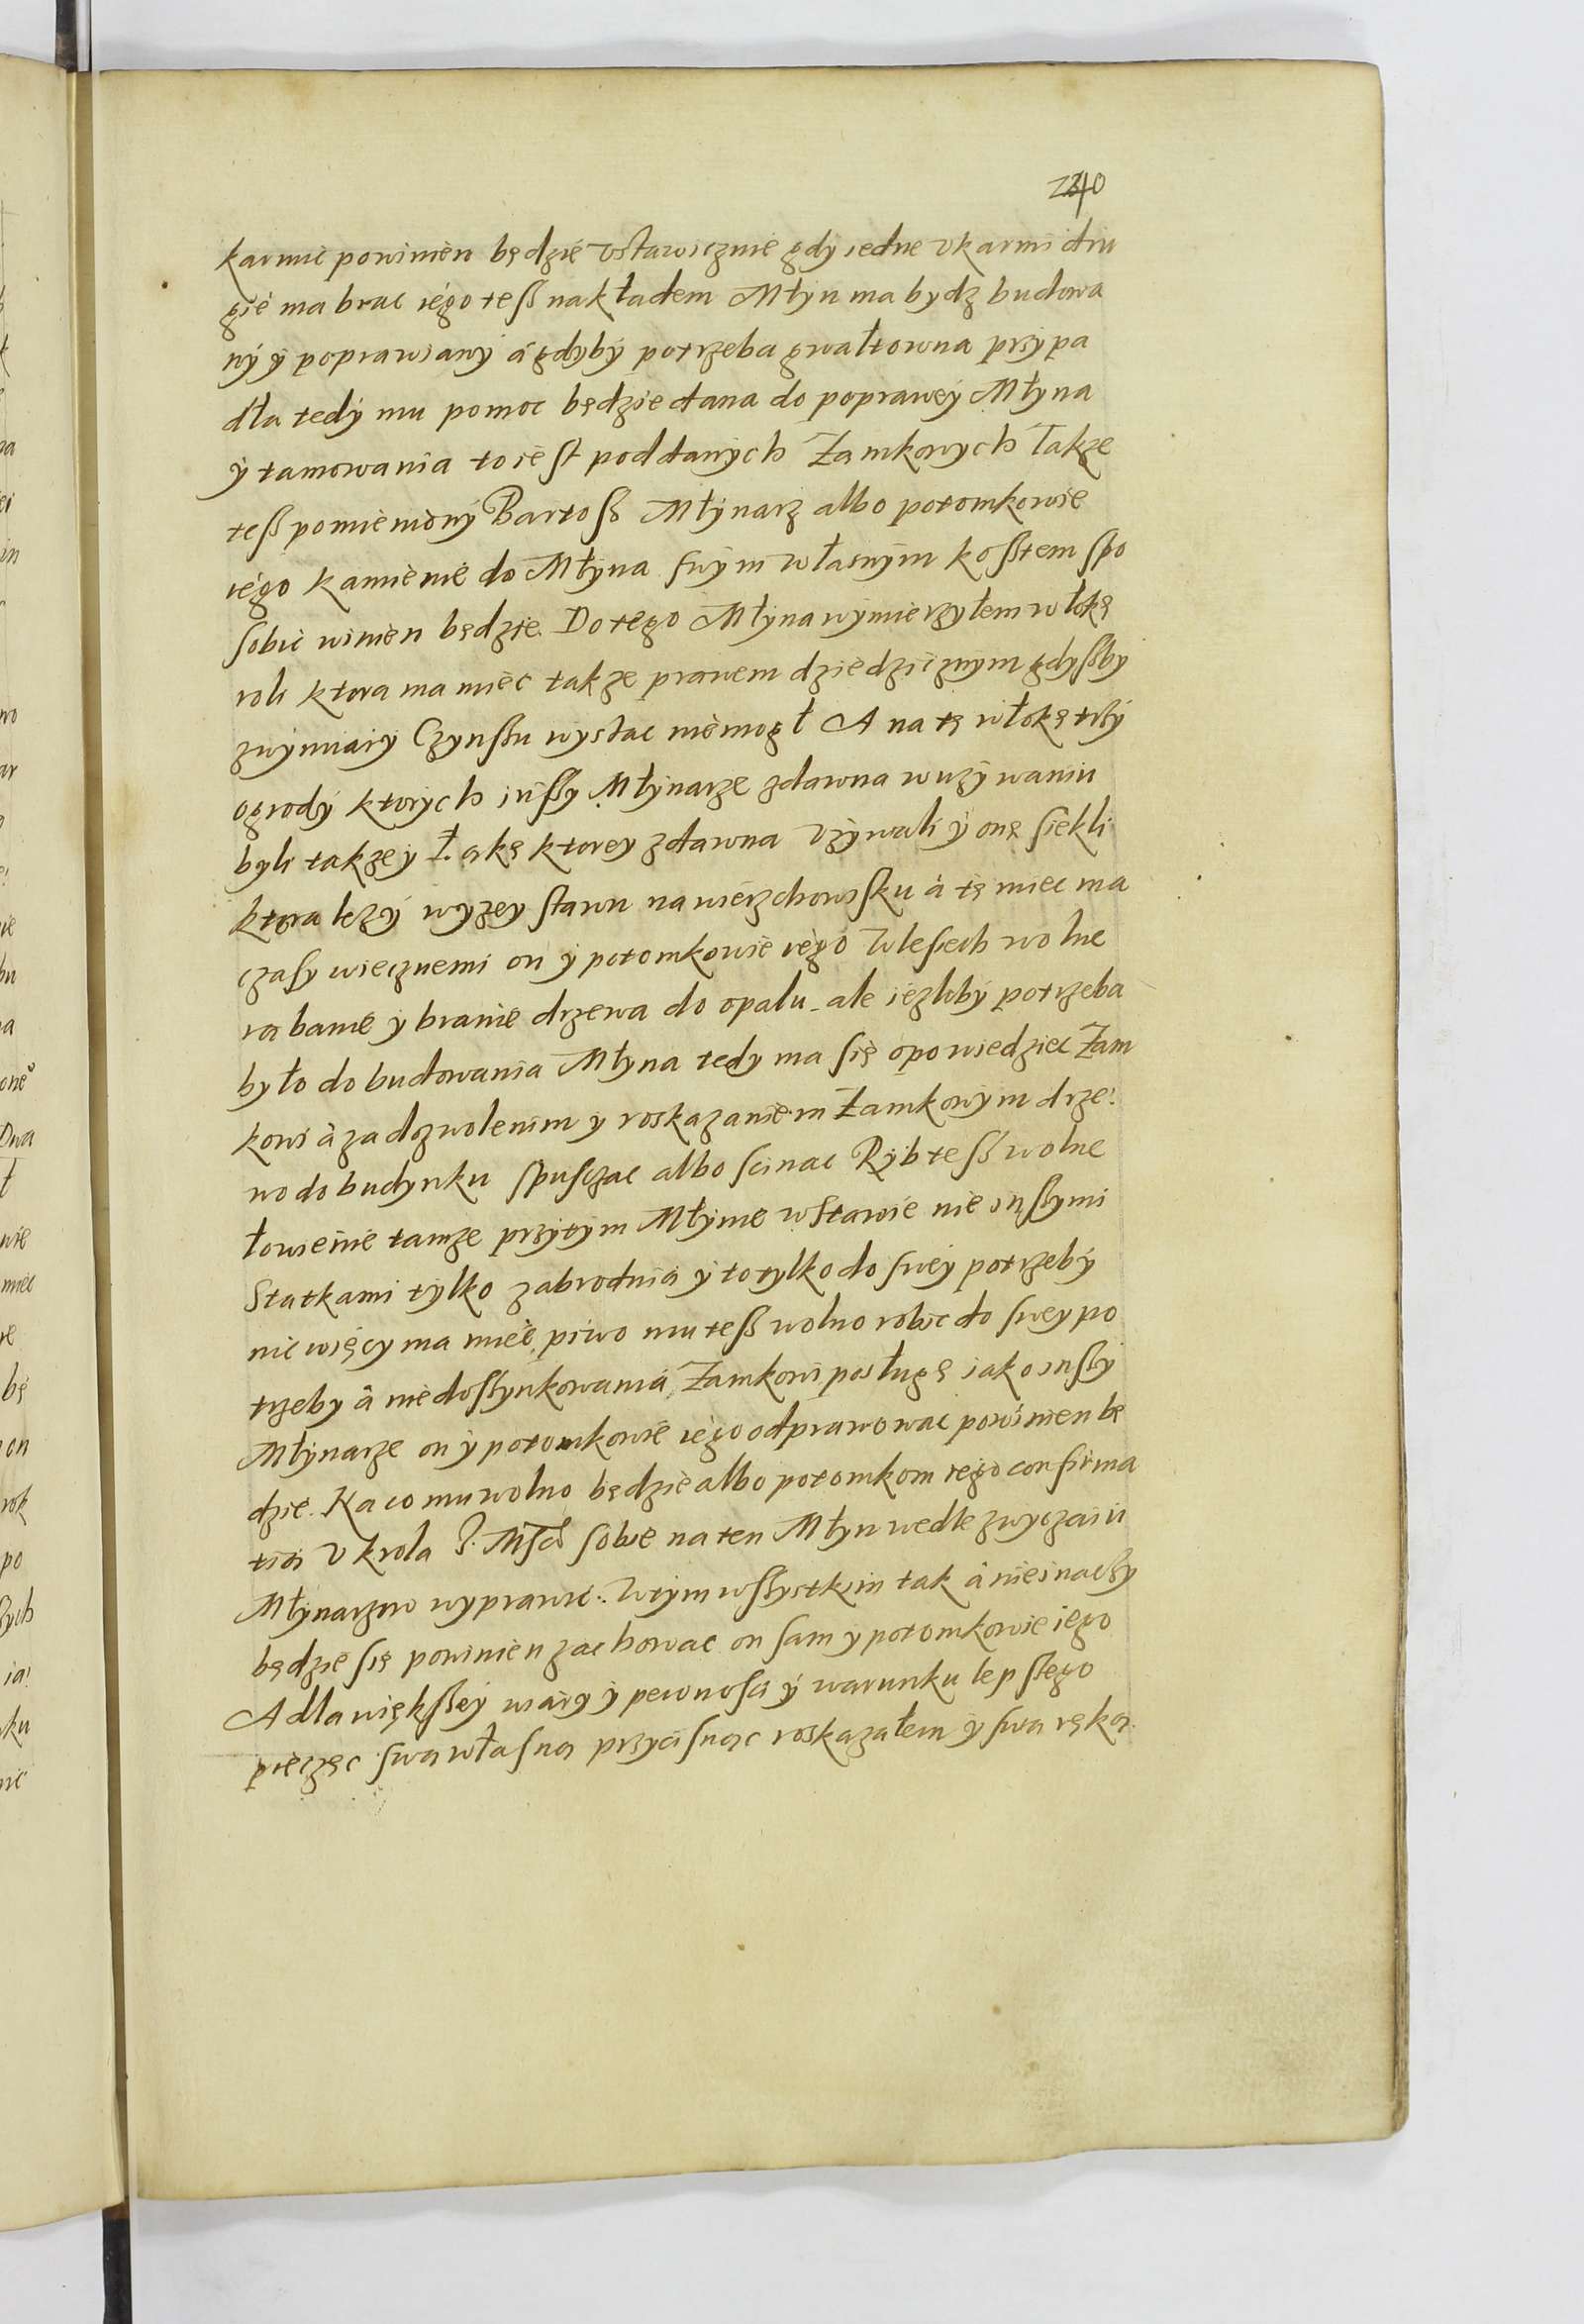 240
karmic powinien będzie vstawicznie gdy iedne vkarmi dru
gie ma brac iego teß nakładem Młyn ma bydz budowa
ny y poprawiany á gdyby potrzeba gwałtowna przypa
dła tedy mu pomoc będzie dana do poprawey Młyna
y tamowania to iest poddanych Zamkowych Takze
teß pomieniony Bartoß Młynarz albo potomkowie
iego kamienie do Młyna swym własnym koßtem spo
sobic winien będzie. Do tego Młyna wymierzyłem włokę
roli ktora ma miec takze prawem dziedzicznym gdyßby
z wymiary Czynßu wystac niemogł A na tę włokę trzy
ogrody ktorych inßy Młynarze zdawna w używaniu
byli takze y Łąkę ktorey zdawna Vzywali y onę siekli
ktora lezy wyzey stawu nawierzchowisku á tę miec ma
czasy wiecznemi on y potomkowie iego W lesiech wolne
rąbanie y branie drzewa do opalu ale iezliby potrzeba
było do budowania Młyna tedy ma się opowiedziec Zam
kowi á za dozwolenim y roskazaniem Zamkowym drze:
wo do budynku spusczac albo scinac Ryb teß wolne
łowienie tamze przy tym Młynie w Stawie nie inßymi
Statkami tylko zabrodnią y to tylko do swey potrzeby
nic więcy ma miec, piwo mu teß wolno robic do swey po
trzeby á nie do ßynkowania, Zamkowi posługę iako inßy
Młynarze on y potomkowie iego odprawowac powinien bę
dzie. Na co mu wolno będzie albo potomkom iego confirma
tią V krola J. Msci sobie na ten Młyn wedle zwyczaiu
Młynarzow wyprawic. W tym wßystkim tak á nie inaczy
będzie się powinien zachowac on sam y potomkowie iego
A dla więkßey wiary y pewnosci y warunku lepßego
pieczęc swą własną przycisnąc roskazałem y swą ręką.